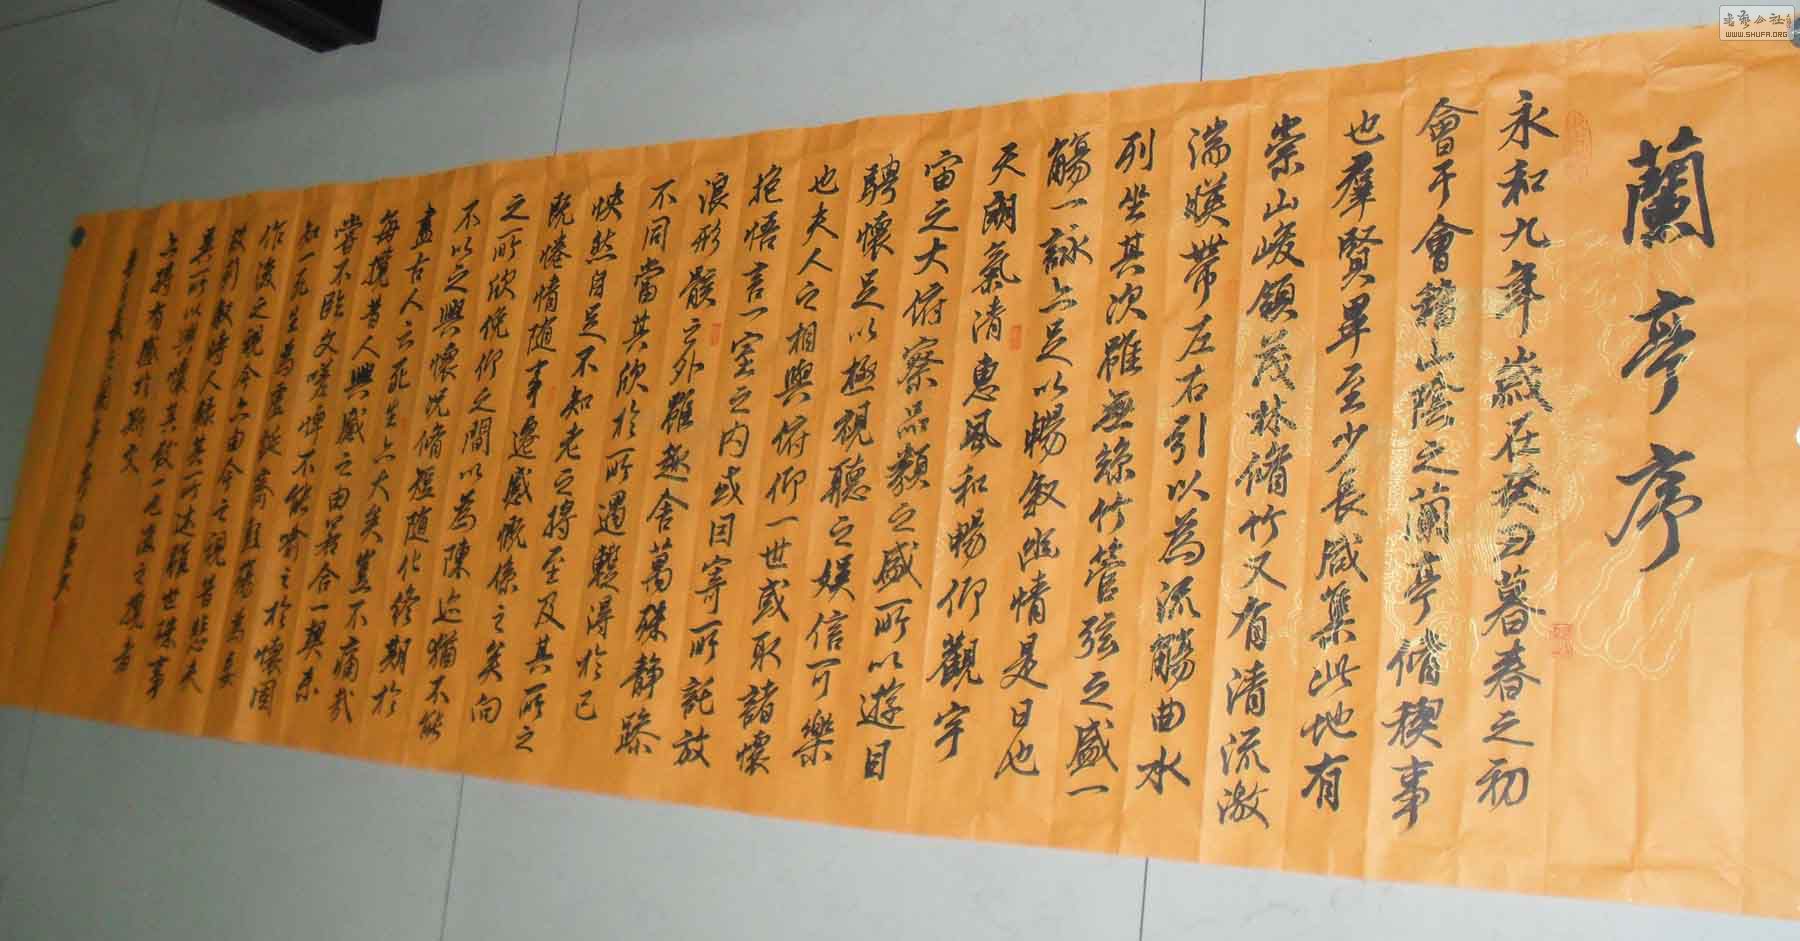 蘭亭序
永和九年歲在癸丑暮春之初
會于會稽山陰之蘭亭脩稧事
也羣賢畢至少長咸集此地有
崇山峻領茂林脩竹又有清流激
湍暎帶左右引以為流觴曲水
列坐其次雖無絲竹管弦之盛一
觴一詠亦足以暢叙幽情是日也
天朗氣清惠風和暢仰觀宇
宙之大俯察品類之盛所以遊目
騁懷足以極視聽之娛信可樂
也夫人之相與俯仰一世或取諸懷
抱悟言一室之内或因寄所託放
浪形骸之外雖趣舍萬殊静躁
不同當其欣於所遇蹔得於己
怏然自足不知老之將至及其所之
既惓情隨事遷感慨係之矣向
之所欣俛仰之間以為陳迹猶不能
不以之興懷况脩短隨化終期於
盡古人云死生亦大矣豈不痛哉
每攬昔人興感之由若合一契未
嘗不臨文嗟悼不能喻之於懷固
知一死生為虛誕齊彭殤為妄
作後之視今亦由今之視昔悲夫
故列叙時人録其所述雖世殊事
異所以興懷其致一也後之攬者
亦將有感於斯文
WWW.SHUFA.ORG